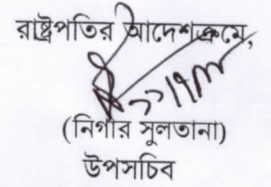 রাষ্ট্রপতির আদেশক্রমে,
(নিগার সুলতানা)
উপসচিব